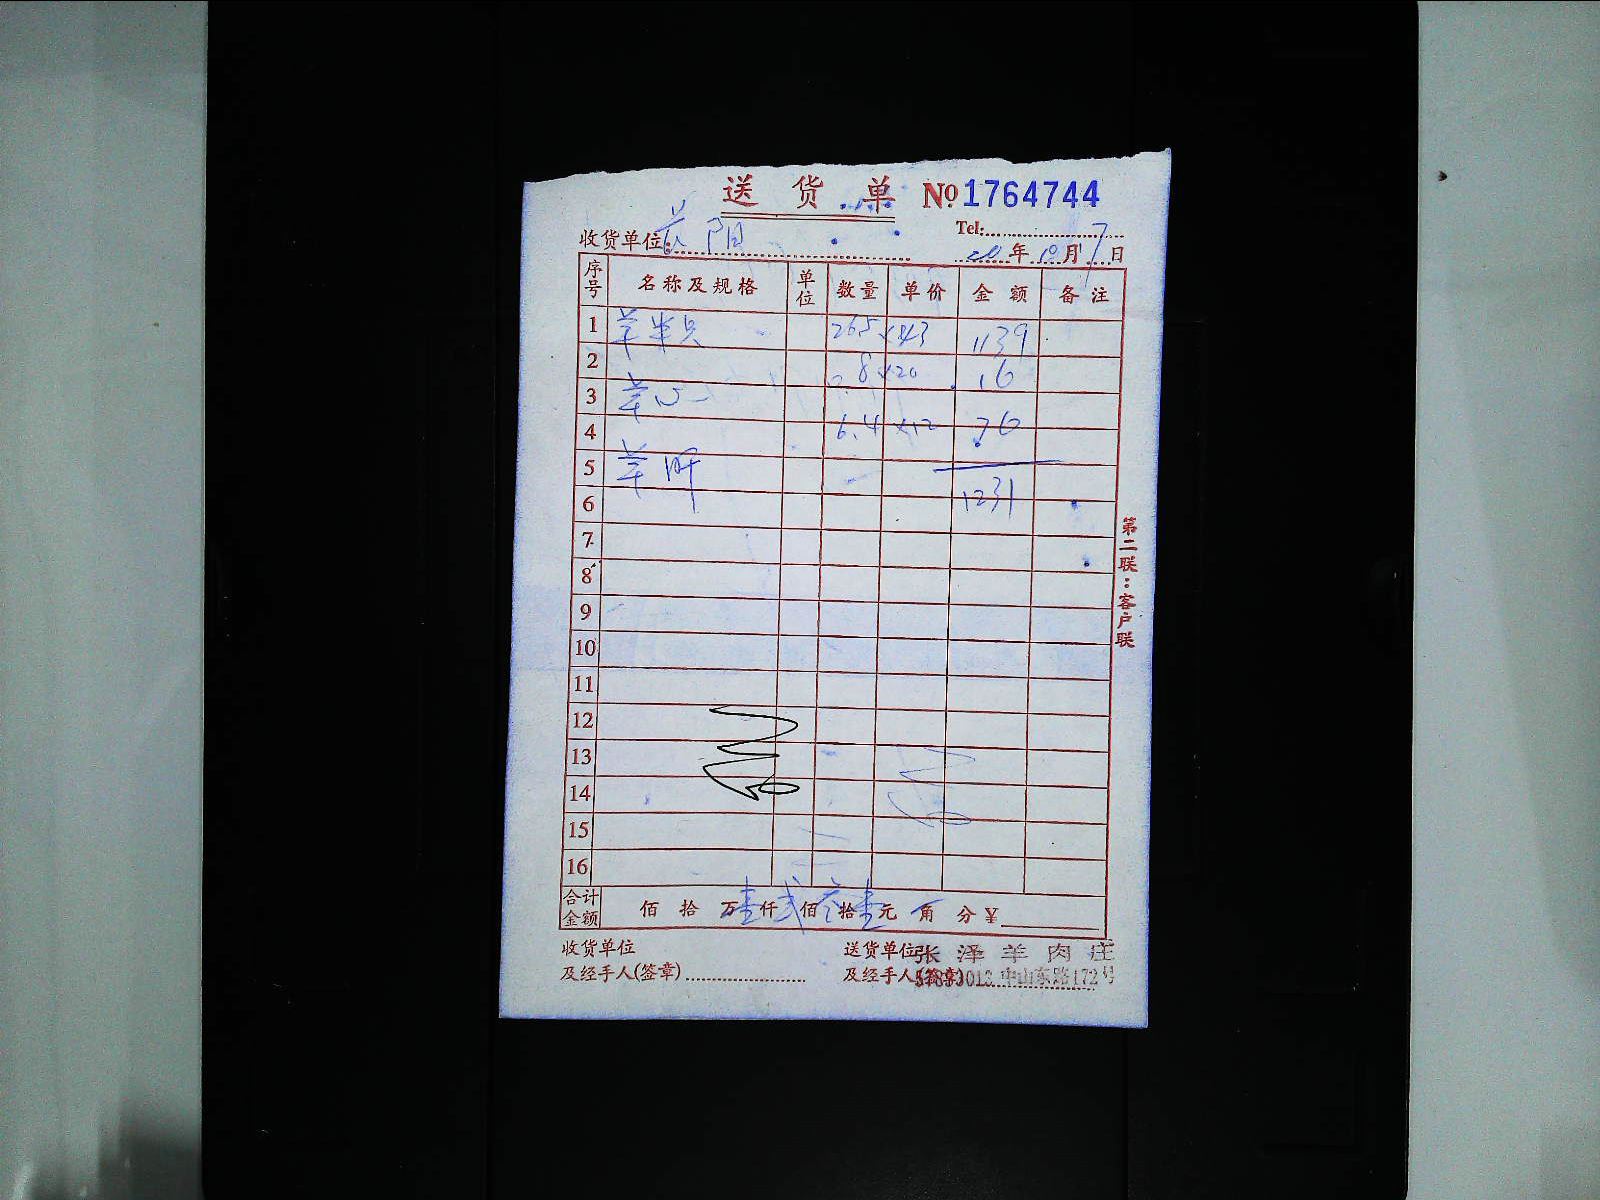 送货单 №1764744
Tel:
收货单位: 阳 年10月7日
序号 名称及规格 单位 数量 单价 金额 备注
1 羊半只 265 ×43 1139
2 .8 ×20 16
3 羊心
4 6.4 ×12 76
5 羊肝
6 1231
7
8
9
10
11
12
13
14
15
16
合计金额 佰 拾 万壹仟弍佰叁拾壹元 角 分 ¥
收货单位 送货单位 张泽羊肉庄
及经手人(签章) 及经手人(签章) 中山东路172号
第二联:客户联